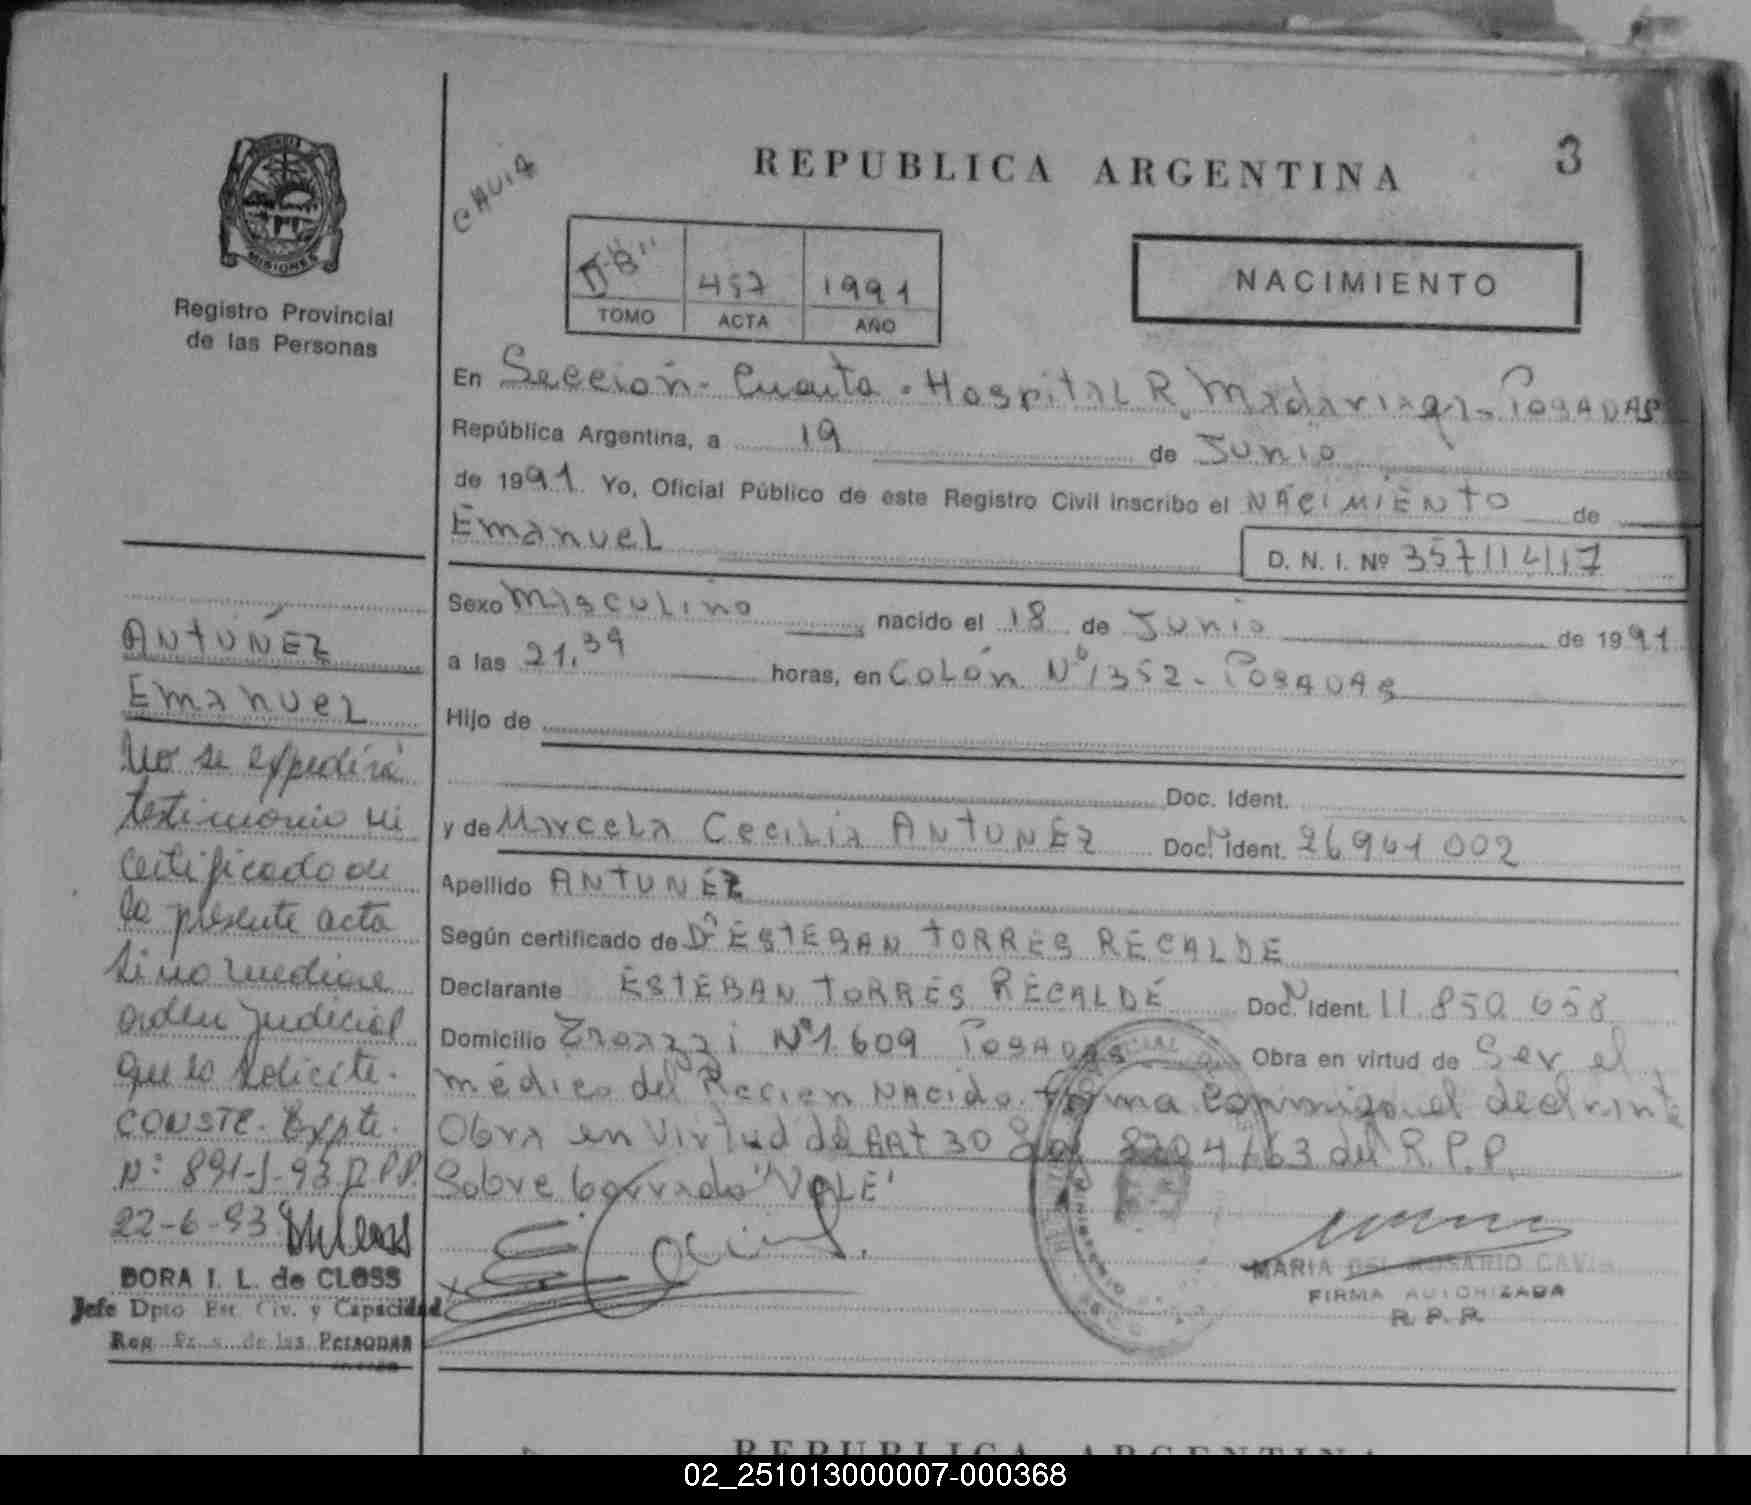 REPUBLICA ARGENTINA
3
CAVIA
MISIONES
Registro Provincial
de las Personas
457 1991
TOMO ACTA AÑO
NACIMIENTO
En Sección - Cuarta - Hospital R. Madariaga - POSADAS
República Argentina, a 19 de Junio
de 1991. Yo, Oficial Público de este Registro Civil inscribo el NACIMIENTO de
Emanuel
D. N. I. Nº
Sexo Masculino nacido el 18 de Junio de 1991
a las 21,39 horas, en Colón Nº 1352 - POSADAS
Hijo de
Doc. Ident.
y de Marcela Cecilia ANTUNEZ Doc. Ident. 26 961 002
Apellido ANTUNEZ
Según certificado de Dr ESTEBAN TORRES RECALDE
Declarante ESTEBAN TORRES RECALDE Doc. Ident. 11.850.658
Domicilio Nº 1.609 POSADAS Obra en virtud de Ser el
médico del Recien NACido. firma conmigo el declrante
Obra en Virtud del ART 30 8204/63 del R.P.P.
Sobre borrado "VALE"
MARIA DEL ROSARIO CAVIA
FIRMA AUTORIZADA
R. P. P.
ANTUÑEZ
Emanuel
No se expedirá
testimonio ni
certificado de
la presente acta
si no mediare
orden judicial
que lo solicite.
CONSTE. Expte.
Nº 891-J-93 R.P.P.
22-6-93
DORA I. L. de CLOSS
Jefe Dpto Est. Civ. y Capacidad
Reg. de las Personas
REPUBLICA ARGENTINA
02_251013000007-000368